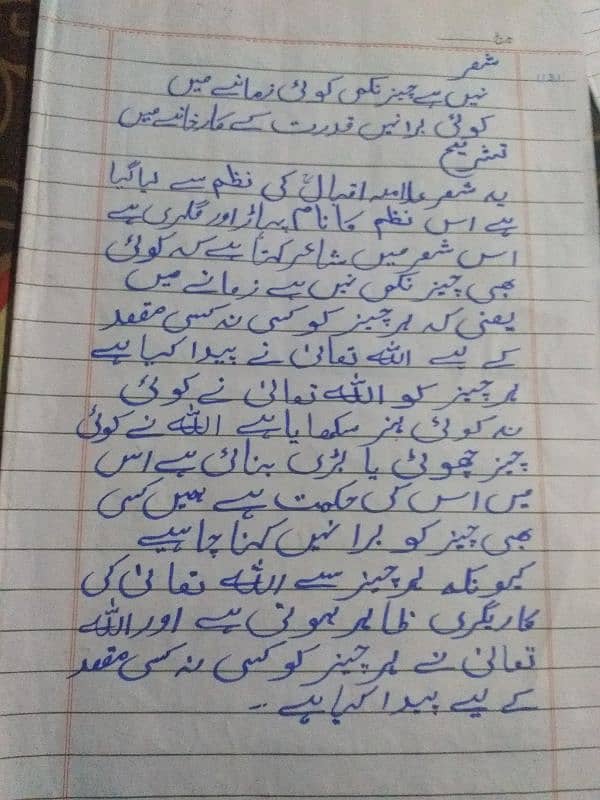 شعر
نہیں ہے چیز نکمی کوئی زمانے میں
کوئی برا نہیں قدرت کے کارخانے میں
تشریح
یہ شعر علامہ اقبالؒ کی نظم سے لیا گیا
ہے اس نظم کا نام پہاڑ اور گلہری ہے
اس شعر میں شاعر کہتا ہے کہ کوئی
بھی چیز نکمی نہیں ہے زمانے میں
یعنی کہ ہر چیز کو کسی نہ کسی مقصد
کے لیے اللہ تعالیٰ نے پیدا کیا ہے
ہر چیز کو اللہ تعالیٰ نے کوئی
نہ کوئی ہنر سکھایا ہے اللہ نے کوئی
چیز چھوٹی یا بڑی بنائی ہے اس
میں اس کی حکمت ہے ہمیں کسی
بھی چیز کو برا نہیں کہنا چاہیے
کیونکہ ہر چیز سے اللہ تعالیٰ کی
کاریگری ظاہر ہوتی ہے اور اللہ
تعالیٰ نے ہر چیز کو کسی نہ کسی مقصد
کے لیے پیدا کیا ہے ۔۔